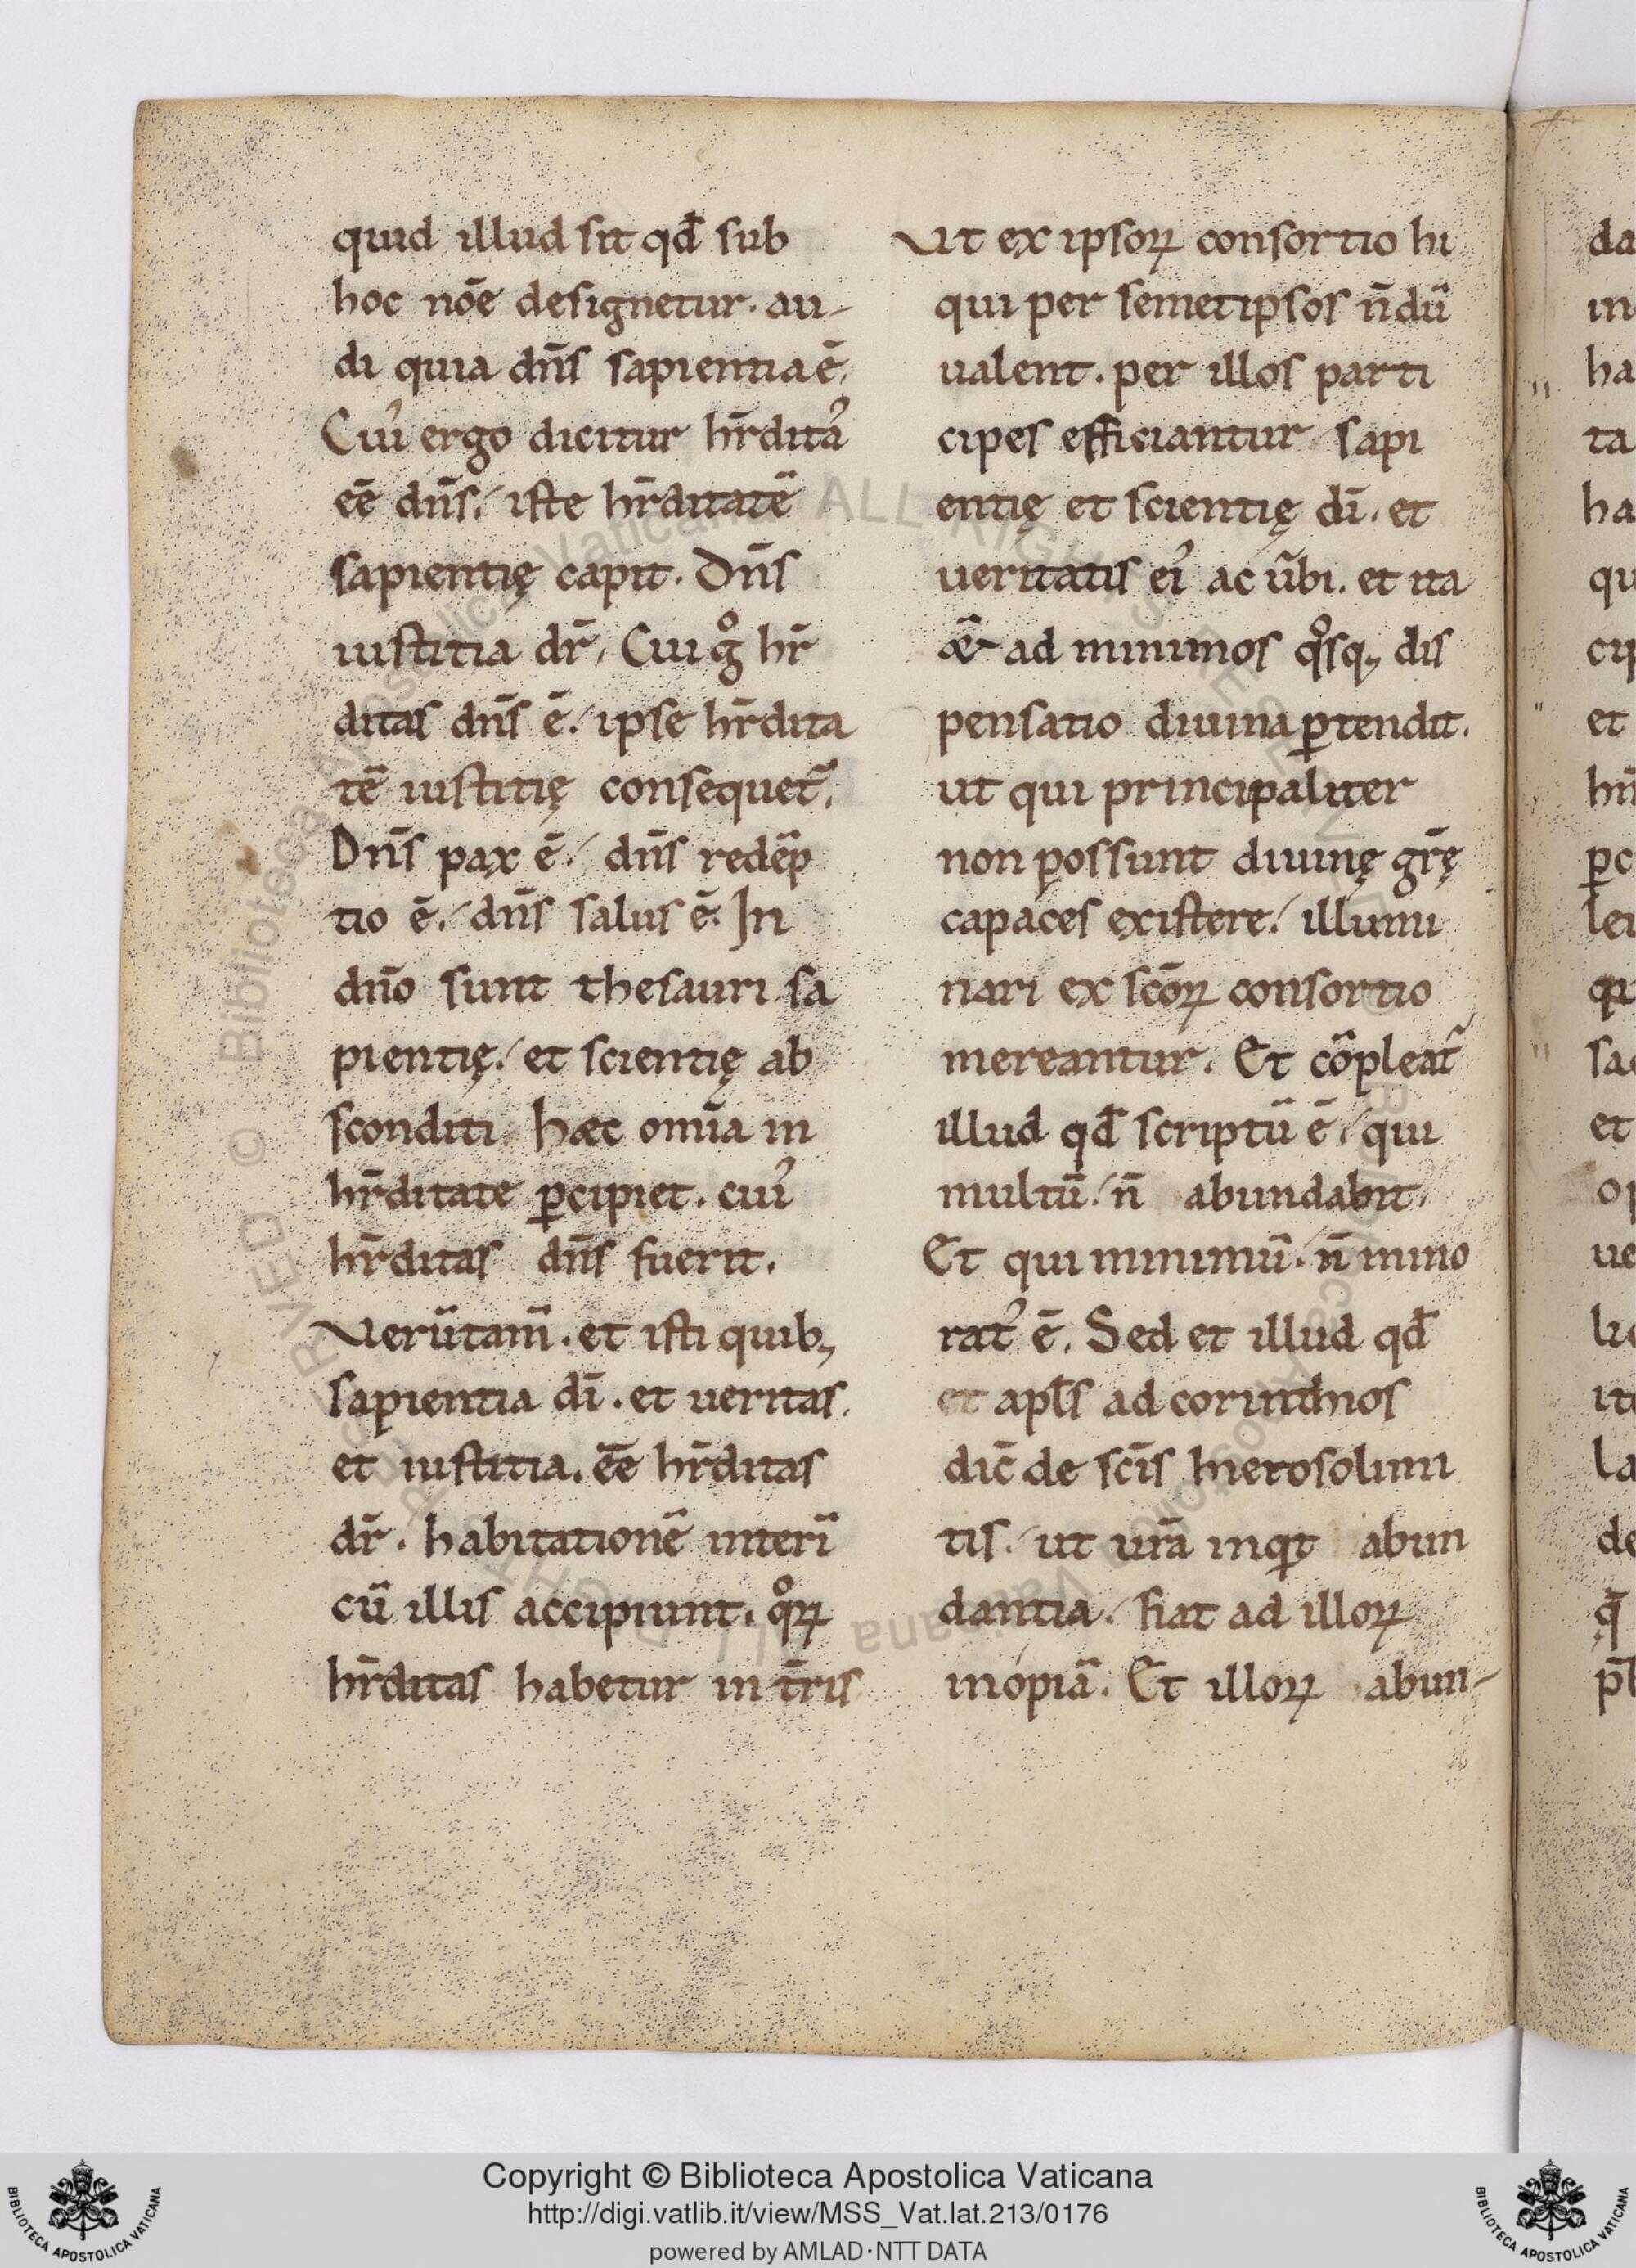 quid illud sit qđ sub
hoc nōe designetur. au-
di quia dn̄s sapientia ē.
Cuiꝰ ergo dicitur hr̄ditaꝰ
eē dn̄s. iste hr̄ditatē
sapientię capit. Dn̄s
iustitia dr̄. Cui gͦ hr̄
ditas dn̄s ē. ipse hr̄dita
tē iustitię consequet᷑.
Dn̄s pax ē. dn̄s redēp
tio ē. dn̄s salus ē. In
dn̄o sunt thesauri sa
pientię. et scientię ab
sconditi. hæc om̄ia in
hr̄ditate ꝑcipiet. cuiꝰ
hr̄ditas dn̄s fuerit.
Verūtam̄. et isti quibꝫ
sapientia dī. et ueritas.
et iustitia. eē hr̄ditas
dr̄. habitationē interī
cū illis accipiunt. qͦꝝ
hr̄ditas habetur in tr̄ris
Vt ex ipsoꝝ consortio hi
qui per semetipsos n̄dū
ualent. per illos parti
cipes efficiantur sapi
entię et scientię dī. et
ueritatis eiꝰ ac ūbi. et ita
ad minimos qͦsqꝫ dis
pensatio diuina ꝑtendit.
ut qui principaliter
non possunt diuinę gr̄ę
capaces existere. illumi
nari ex scōꝝ consortio
mereantur. Et cōpleat᷑
illud qđ scriptū ē. qui
multū. n̄ abundabit.
Et qui minimū. n̄ mino
ratꝰ ē. Sed et illud qđ
et apl̄s ad corinthios
dic̄ de sc̄is hierosolimi
tis. ut ur̄a inqͥt abun
dantia. fiat ad illoꝝ
inopiā. Et illoꝝ abun-
da
in
ha
ta
ha
qu
cip
et
hn̄
ꝑc
lei
qu
sa
et
op
ue
lic
ite
la
de
Copyright © Biblioteca Apostolica Vaticana
http://digi.vatlib.it/view/MSS_Vat.lat.213/0176
powered by AMLAD·NTT DATA
BIBLIOTECA APOSTOLICA VATICANA
BIBLIOTECA APOSTOLICA VATICANA